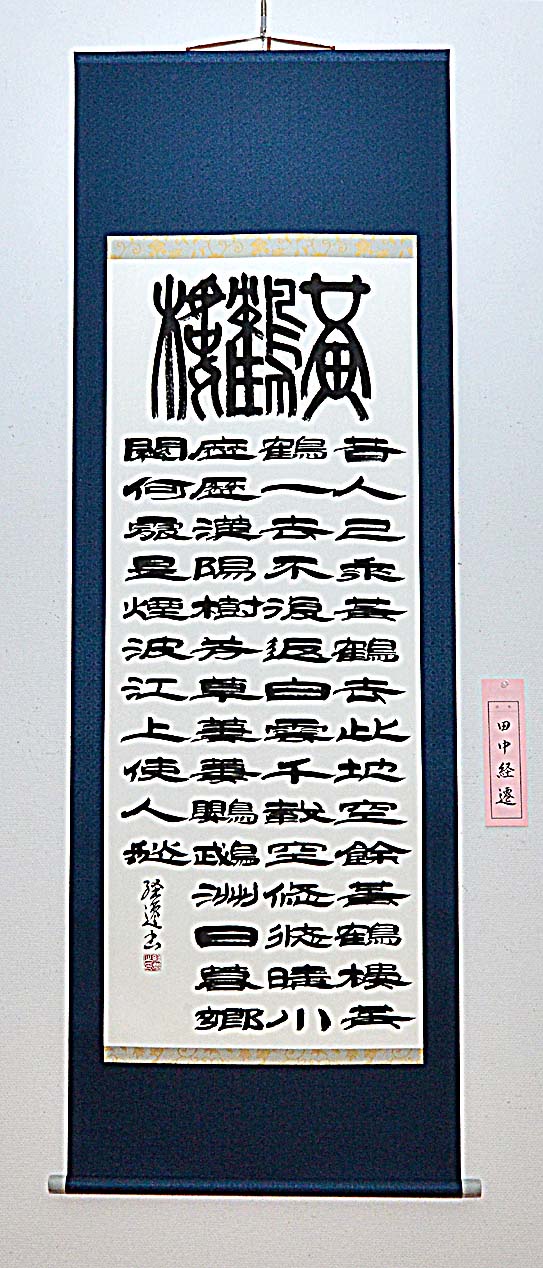 黃鶴樓
昔人已乘黃鶴去此地空餘黃鶴樓黃
鶴一去不復返白雲千載空悠悠晴川
歷歷漢陽樹芳草萋萋鸚鵡洲日暮鄉
關何處是煙波江上使人愁
経遷書
田中経遷